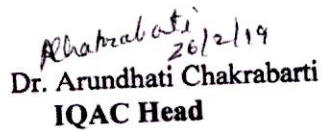 Chakrabarti
26/2/19
Dr. Arundhati Chakrabarti
IQAC Head